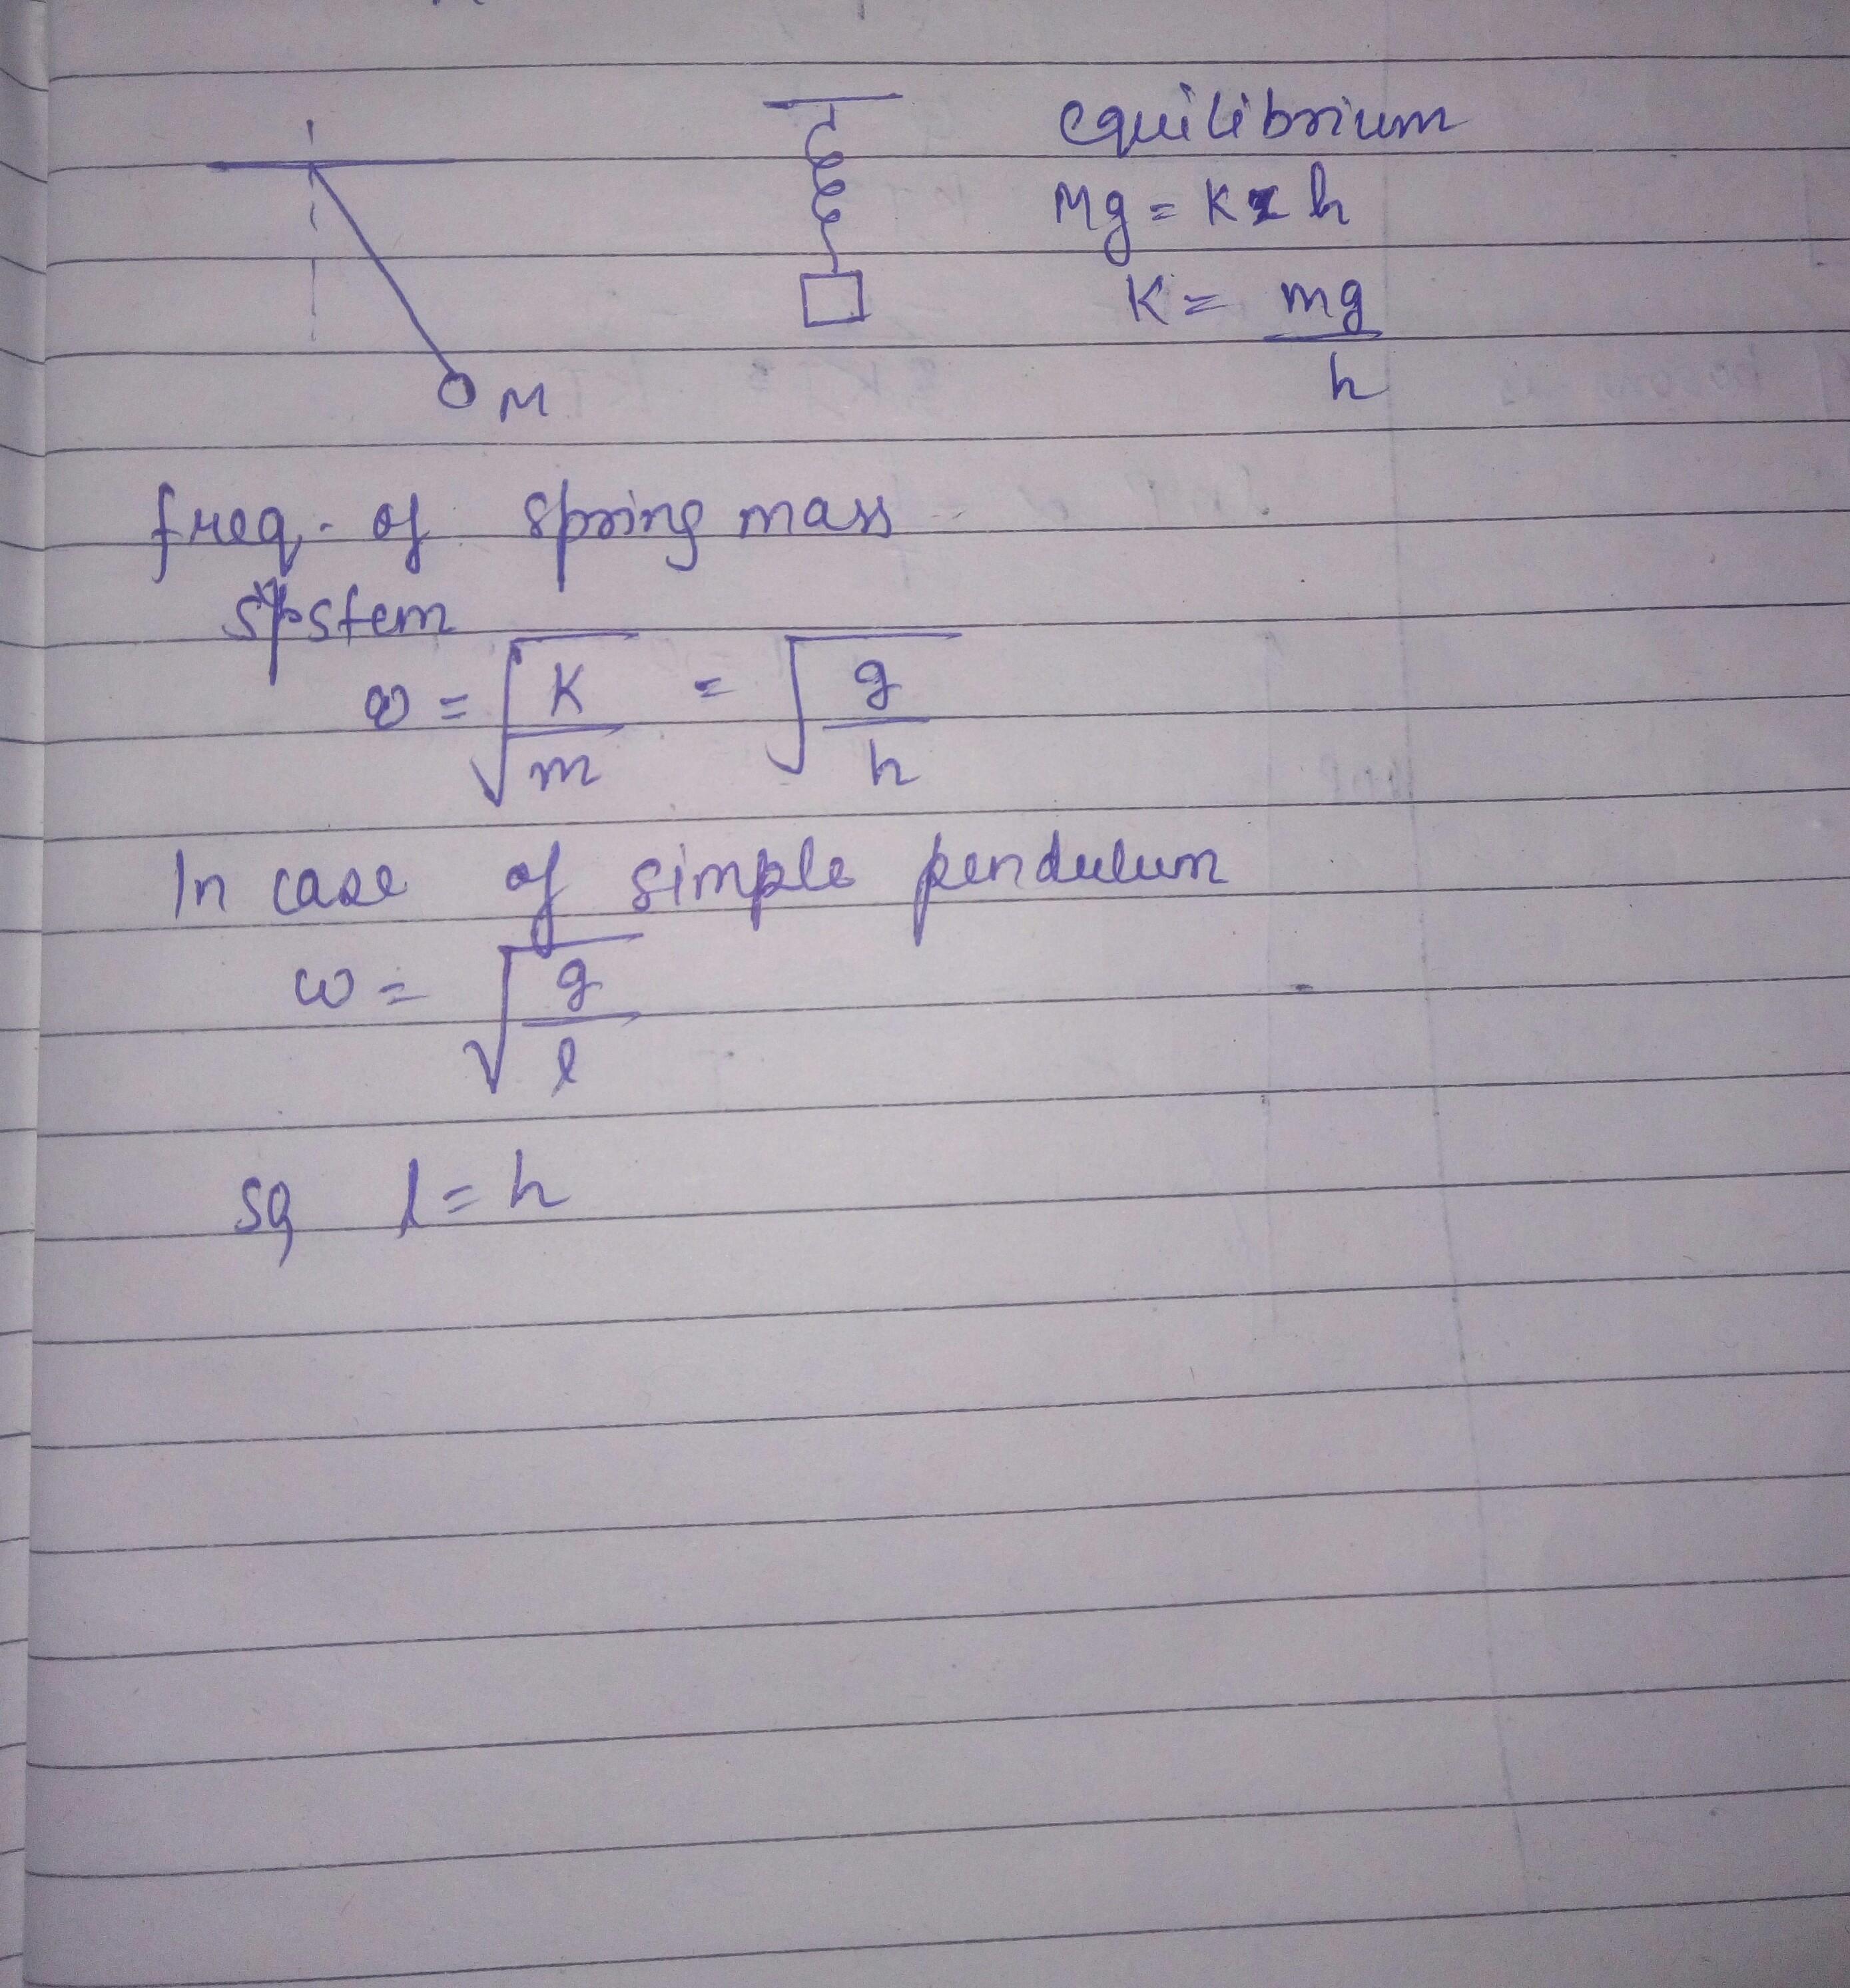 equilibrium
Mg = K h
K = mg/h
M
freq. of spring mass
system
ω = √(K/m) = √(g/h)
In case of simple pendulum
ω = √(g/l)
so, l = h